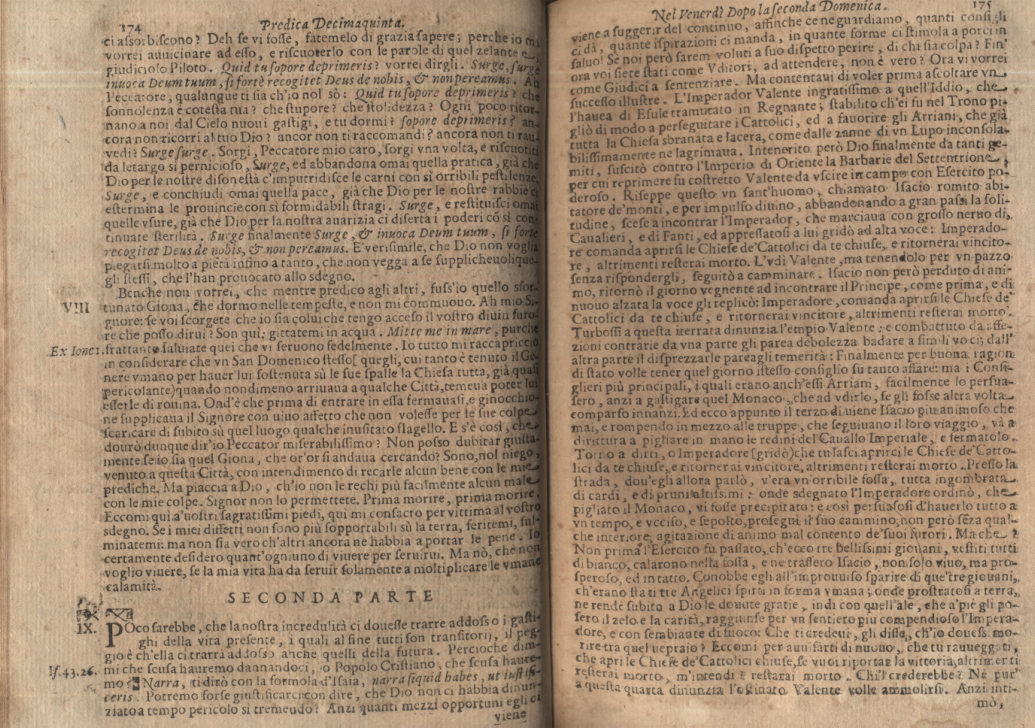 174 Predica Decimaquinta.
ci assorbiscono? Deh se vi fosse, fatemelo di grazia sapere; perche io mi
vorrei avuicinare ad esso, e riscuoterlo con le parole di quel zelante, e
giudicioso Piloto. Quid tu sopore deprimeris? vorrei dirgli. Surge, surge
inuoca Deum tuum, si fortè recogitet Deus de nobis, & non pereamus. Ah
Peccatore, qualunque ti sia ch'io nol sò: Quid tu sopore deprimeris? che
sonnolenza è cotesta tua? che stupore? che stolidezza? Ogni poco ritor-
nano a noi dal Cielo nuoui gastigi, e tu dormi? sopore deprimeris? an-
cora non ricorri al tuo Dio? ancor non ti raccomandi? ancora non ti rau-
vedi? Surge surge. Sorgi, Peccatore mio caro, sorgi vna volta, e riscuotiti
da letargo si pernicioso, Surge, ed abbandona omai quella pratica, già che
Dio per le nostre disonestà c'imputridisce le carni con sì orribili pestilenze.
Surge, e conchiudi omai quella pace, già che Dio per le nostre rabbie ci
estermina le prouincie con sì formidabili stragi. Surge, e restituisci omai
quelle vsure, già che Dio per la nostra auarizia ci diserta i poderi cō sì con-
tinuate sterilità. Surge finalmente Surge, & inuoca Deum tuum, si fortè
recogitet Deus de nobis, & non pereamus. E' verisimile, che Dio non voglia
piegarsi molto a pietà infino a tanto, che non vegga a se supplicheuoli que-
gli stessi, che l'han prouocato allo sdegno.
VIII Benche non vorrei, che mentre predico agli altri, fuss'io quello sfor-
tunato Giona, che dormo nelle tempeste, e non mi commuouo. Ah mio Si-
gnore: se voi scorgete che io sia colui che tengo acceso il vostro diuin furo-
re che posso dirui? Son qui; gittatemi in acqua. Mitte me in mare, purche
Ex Ione 1. frattanto saluiate quei che vi seruono fedelmente. Io tutto mi raccapriccio
in considerare che vn San Domenico stesso [quegli, cui tanto è tenuto il Ge-
nere vmano per hauer lui sostenuta sù le sue spalle la Chiesa tutta, già quasi
pericolante) quando nondimeno arriuaua a qualche Città, temeua poter lui
esserle di rouina. Ond'è che prima di entrare in essa fermauasi, e ginocchio-
ne supplicaua il Signore con viuo affetto che non volesse per le sue colpe
scaricare di subito sù quel luogo qualche inusitato flagello. E s'è così, che
dourò dunque dir'io Peccator miserabilissimo? Non posso dubitar giusta-
mente se io sia quel Giona, che or'or si andaua cercando? Sono, nol niego,
venuto a questa Città, con intendimento di recarle alcun bene con le mie
prediche. Ma piaccia a Dio, ch'io non le rechi più facilmente alcun male
con le mie colpe. Signor non lo permettete. Prima morire, prima morire.
Eccomi qui a' uostri sagratissimi piedi, qui mi consacro per vittima al vostro
sdegno. Se i miei difetti non sono più sopportabili sù la terra, feritemi, ful-
minatemi: ma non sia vero ch'altri ancora ne habbia a portar le pene. Io
certamente desidero quant'ogniuno di viuere per seruirui. Ma nò, che non
voglio viuere, se la mia vita ha da seruir solamente a moltiplicare le vmane
calamità.
SECONDA PARTE
IX. POco sarebbe, che la nostra incredulità ci douesse trarre addosso i gasti-
ghi della vita presente, i quali al fine tutti son transitorij, il peg-
gio è ch'ella ci trarrà addosso anche quelli della futura. Percioche dim-
Is. 43.26. mi che scusa hauremo dannandoci, o Popolo Cristiano, che scusa haure-
mo? Narra, ti dirò con la formola d'Isaia, narra siquid habes, ut iustifi-
ceris. Potremo forse giustificarci con dire, che Dio non ci habbia dinun-
ziato a tempo pericolo sì tremendo? Anzi quanti mezzi opportuni egli ci
viene
Nel Venerdì Dopo la seconda Domenica. 175
viene a suggerir del continuo, affinche ce ne guardiamo, quanti consigli
ci dà, quante ispirazioni ci manda, in quante forme ci stimola a porci in
saluo! Se noi però sarem voluti a suo dispetto perire, di chi sia colpa? Fin'
ora voi siete stati come Vditori, ad attendere, non è vero? Ora vi vorrei
come Giudici a sentenziare. Ma contentaui di voler prima ascoltare vn
successo illustre. L'Imperador Valente ingratissimo a quell'Iddio, che
l'hauea di Esule tramutato in Regnante; stabilito ch'ei fu nel Trono pi-
gliò di modo a perseguitare i Cattolici, ed a fauorire gli Arriani, che già
tutta la Chiesa sbranata e lacera, come dalle zanne di vn Lupo inconsola-
bilissimamente ne lagrimaua. Intenerito però Dio finalmente da tanti ge-
miti, suscitò contro l'Imperio di Oriente la Barbarie del Settentrione,
per cui reprimere fu costretto Valente da vscire in campo con Esercito po-
deroso. Riseppe questo vn sant'huomo, chiamato Isacio romito abi-
tatore de' monti, e per impulso diuino, abbandonando a gran passi la soli-
tudine, scese a incontrar l'Imperador, che marciaua con grosso neruo di
Caualieri, e di Fanti, ed appressatosi a lui gridò ad alta voce: Imperado-
re comanda aprirsi le Chiese de' Cattolici da te chiuse, e ritornerai vincito-
re, altrimenti resterai morto. L'vdì Valente, ma tenendolo per vn pazzo
senza rispondergli, seguitò a camminare. Isacio non però perduto di ani-
mo, ritornò il giorno vegnente ad incontrare il Principe, come prima, e di
nuouo alzata la voce gli replicò: Imperadore, comanda aprirsi le Chiese de'
Cattolici da te chiuse, e ritornerai vincitore, altrimenti resterai morto.
Turbossi a questa iterata dinunzia l'empio Valente: e combattuto da affe-
zioni contrarie da vna parte gli parea debolezza badare a simili voci; dall'
altra parte il disprezzarle pareagli temerità: Finalmente per buona ragion
di stato volle tener quel giorno istesso consiglio su tanto affare: ma i Consi-
glieri più principali, i quali erano anch'essi Arriani, facilmente lo persua-
sero, anzi a gastigare quel Monaco, che ad vdirlo, se gli fosse altra volta
comparso innanzi. Ed ecco appunto il terzo dì uiene Isacio più animoso che
mai, e rompendo in mezzo alle truppe, che seguiuano il loro viaggio, và a
dirittura a pigliare in mano le redini del Cauallo Imperiale, e fermatolo.
Torno a dirti, o Imperadore [gridò] che tu lasci aprirci le Chiese de' Catto-
lici da te chiuse, e ritornerai vincitore, altrimenti resterai morto. Presso la
strada, dou'egli allora parlò, v'era vn'orribile fossa, tutta ingombrata
di cardi, e di pruni altissimi: onde sdegnato l'Imperadore ordinò, che
pigliato il Monaco, vi fosse precipitato: e così persuasosi d'hauerlo tutto a
vn tempo, e vcciso, e sepolto, prosegnì il suo cammino, non però sēza qual-
che interiore, agitazione di animo mal contento de' suoi furori. Ma che?
Non prima l'Esercito fu passato, ch'ecco tre bellissimi giouani, vestiti tutti
di bianco, calarono nella fossa, e ne trassero Isacio, non solo viuo, ma pro-
speroso, ed intatto. Conobbe egli all'improuiso sparire di que' tre giouani,
ch'erano stati tre Angelici spirti in forma vmana; onde prostratosi a terra,
ne rende subito a Dio le douute gratie, indi con quell'ale, che a' piè gli po-
sero il zelo e la carità, raggiunse per vn sentiero più compendioso l'Impera-
dore, e con sembiante di fuoco: Che ti credeui, gli disse, ch'io douessi mo-
rire tra quel vepraio? Eccomi per auuisarti di nuouo, che tu rauuegga ti,
che apri le Chiese de' Cattolici chiuse, se vuoi riportar la vittoria, altrimenti
resterai morto, m'intendi? resterai morto. Chi'l crederebbe? Ne pur'
a questa quarta dinunzia l'ostinato Valente volle ammolirsi. Anzi inti-
mò,